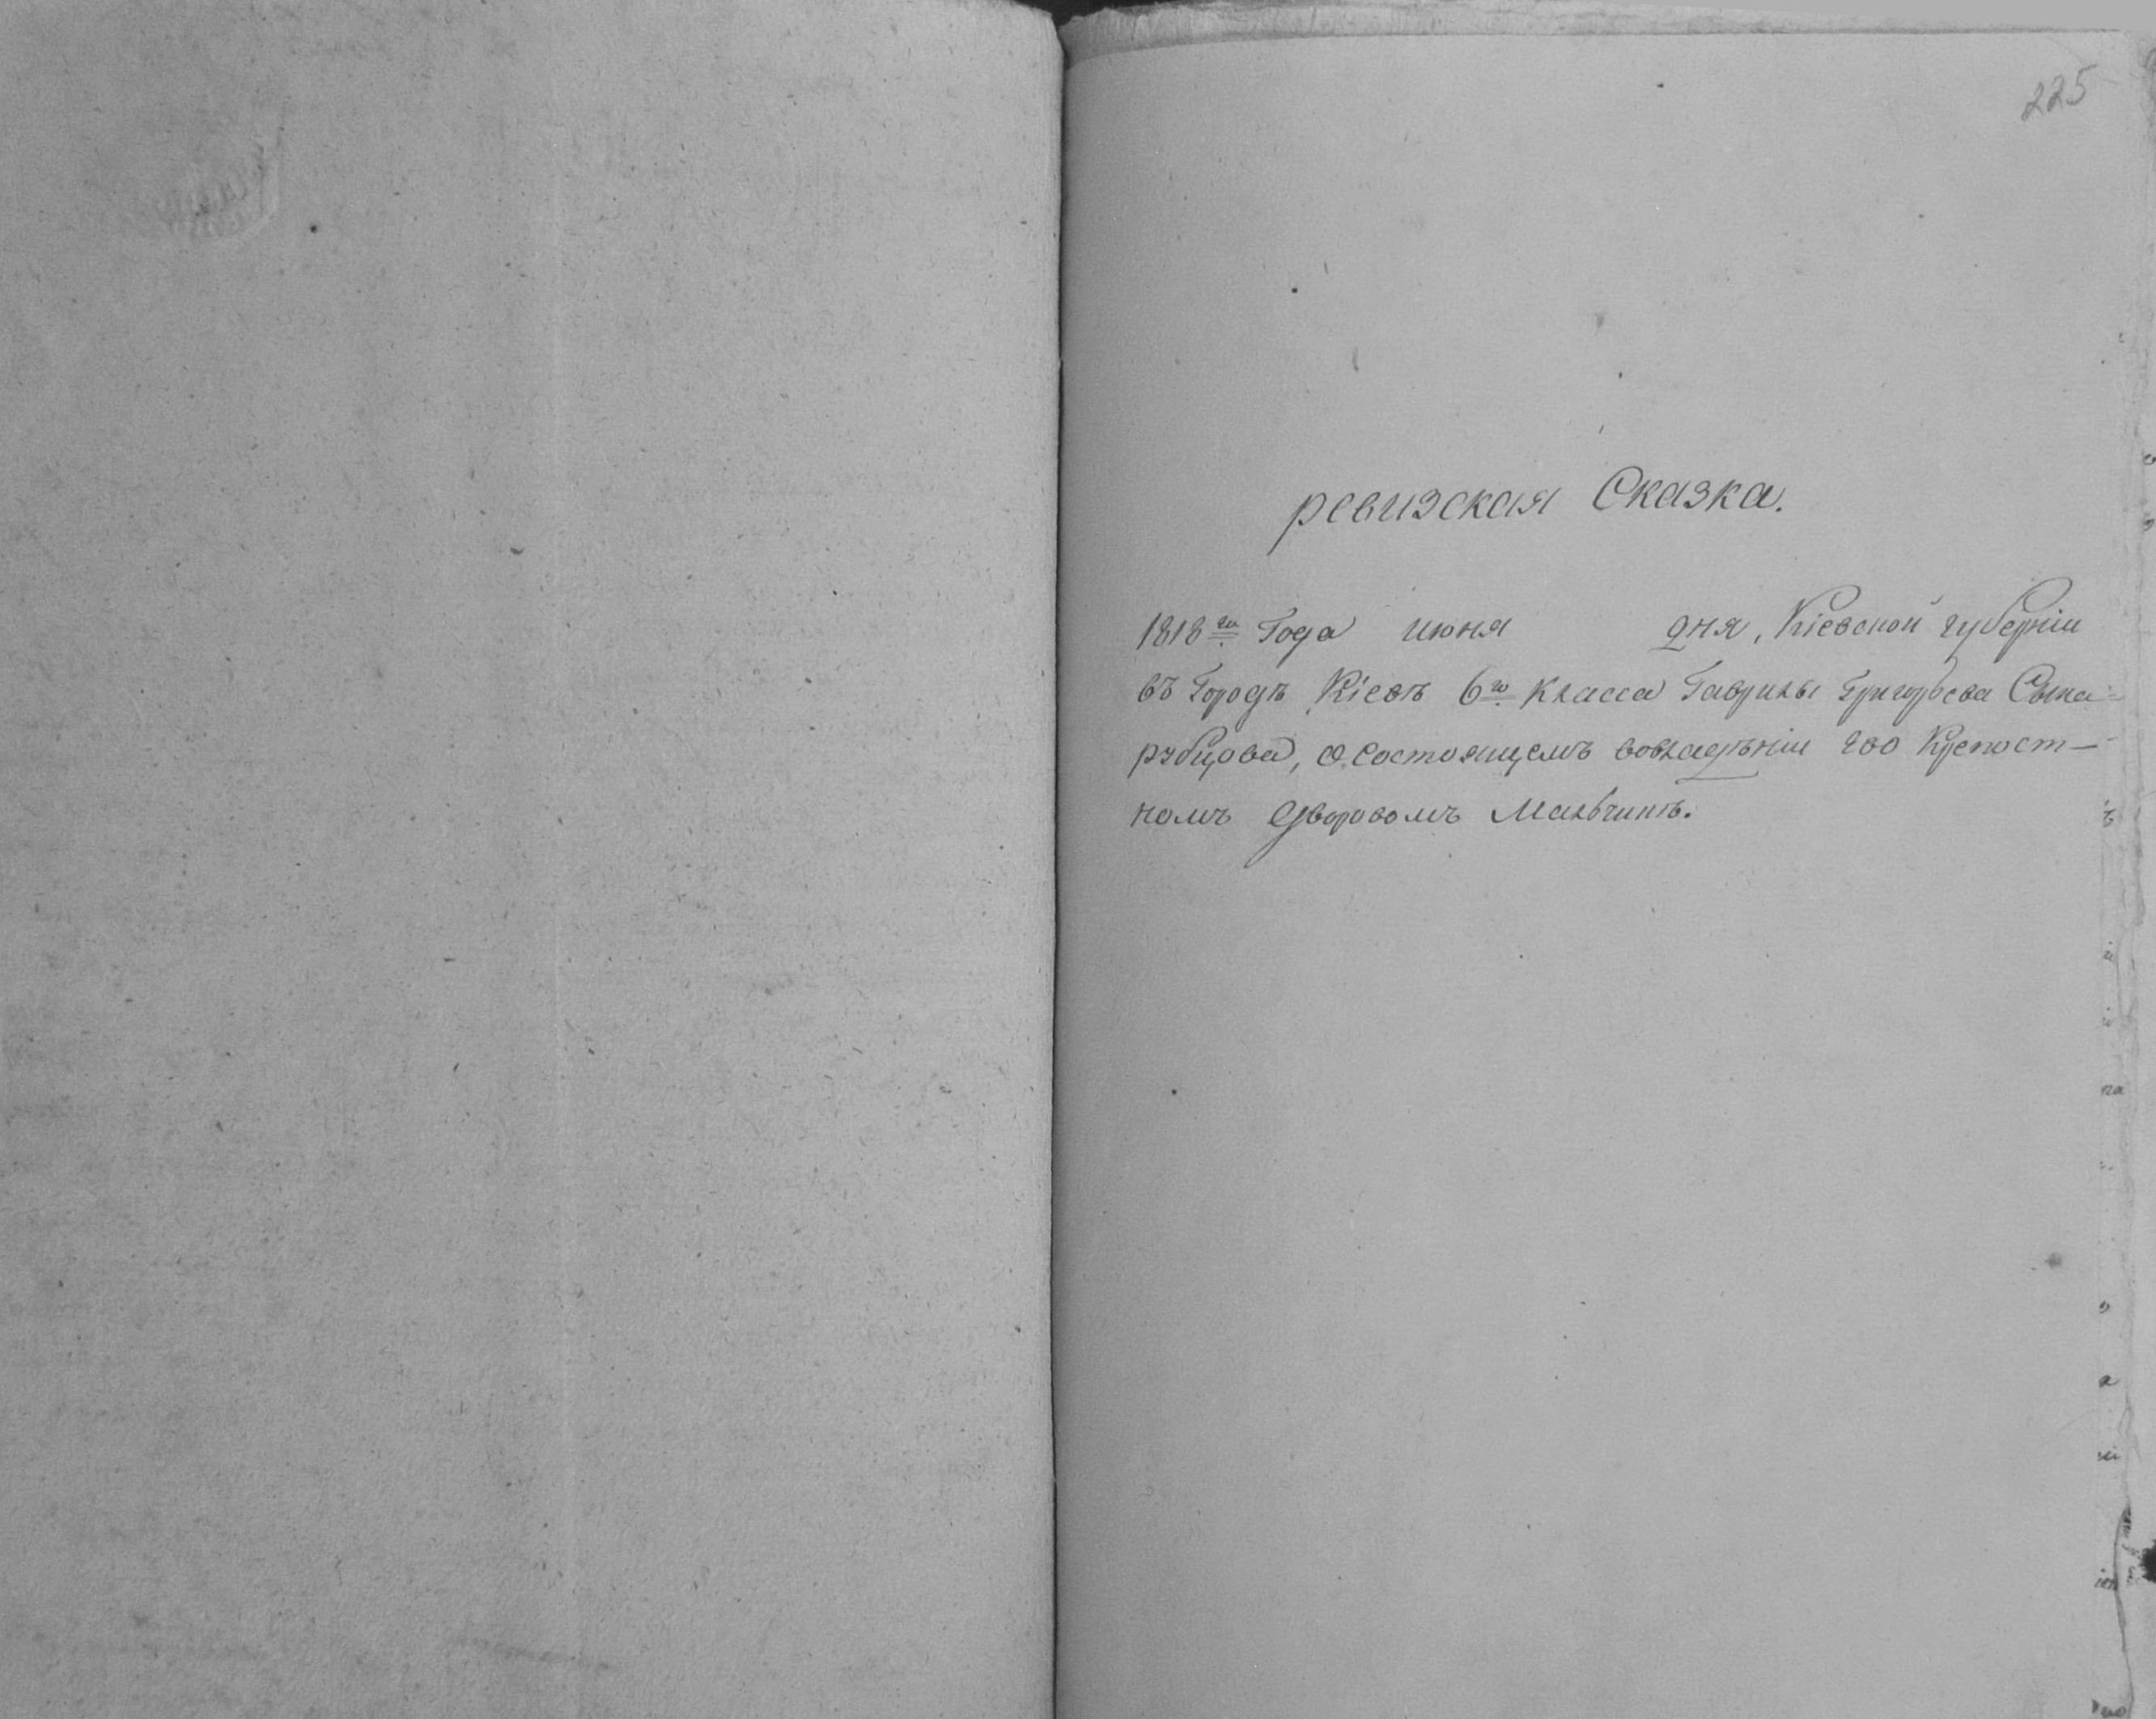 225
ревизская Сказка.
1818го Года июня дня, Кіевской губерніи
въ Городѣ Кіевѣ 6го Класса Гаврилы Григорьева Сына
рубцова, о состоящемъ вовладѣніи его Крепост-
номъ дворовомъ Мальчикѣ.